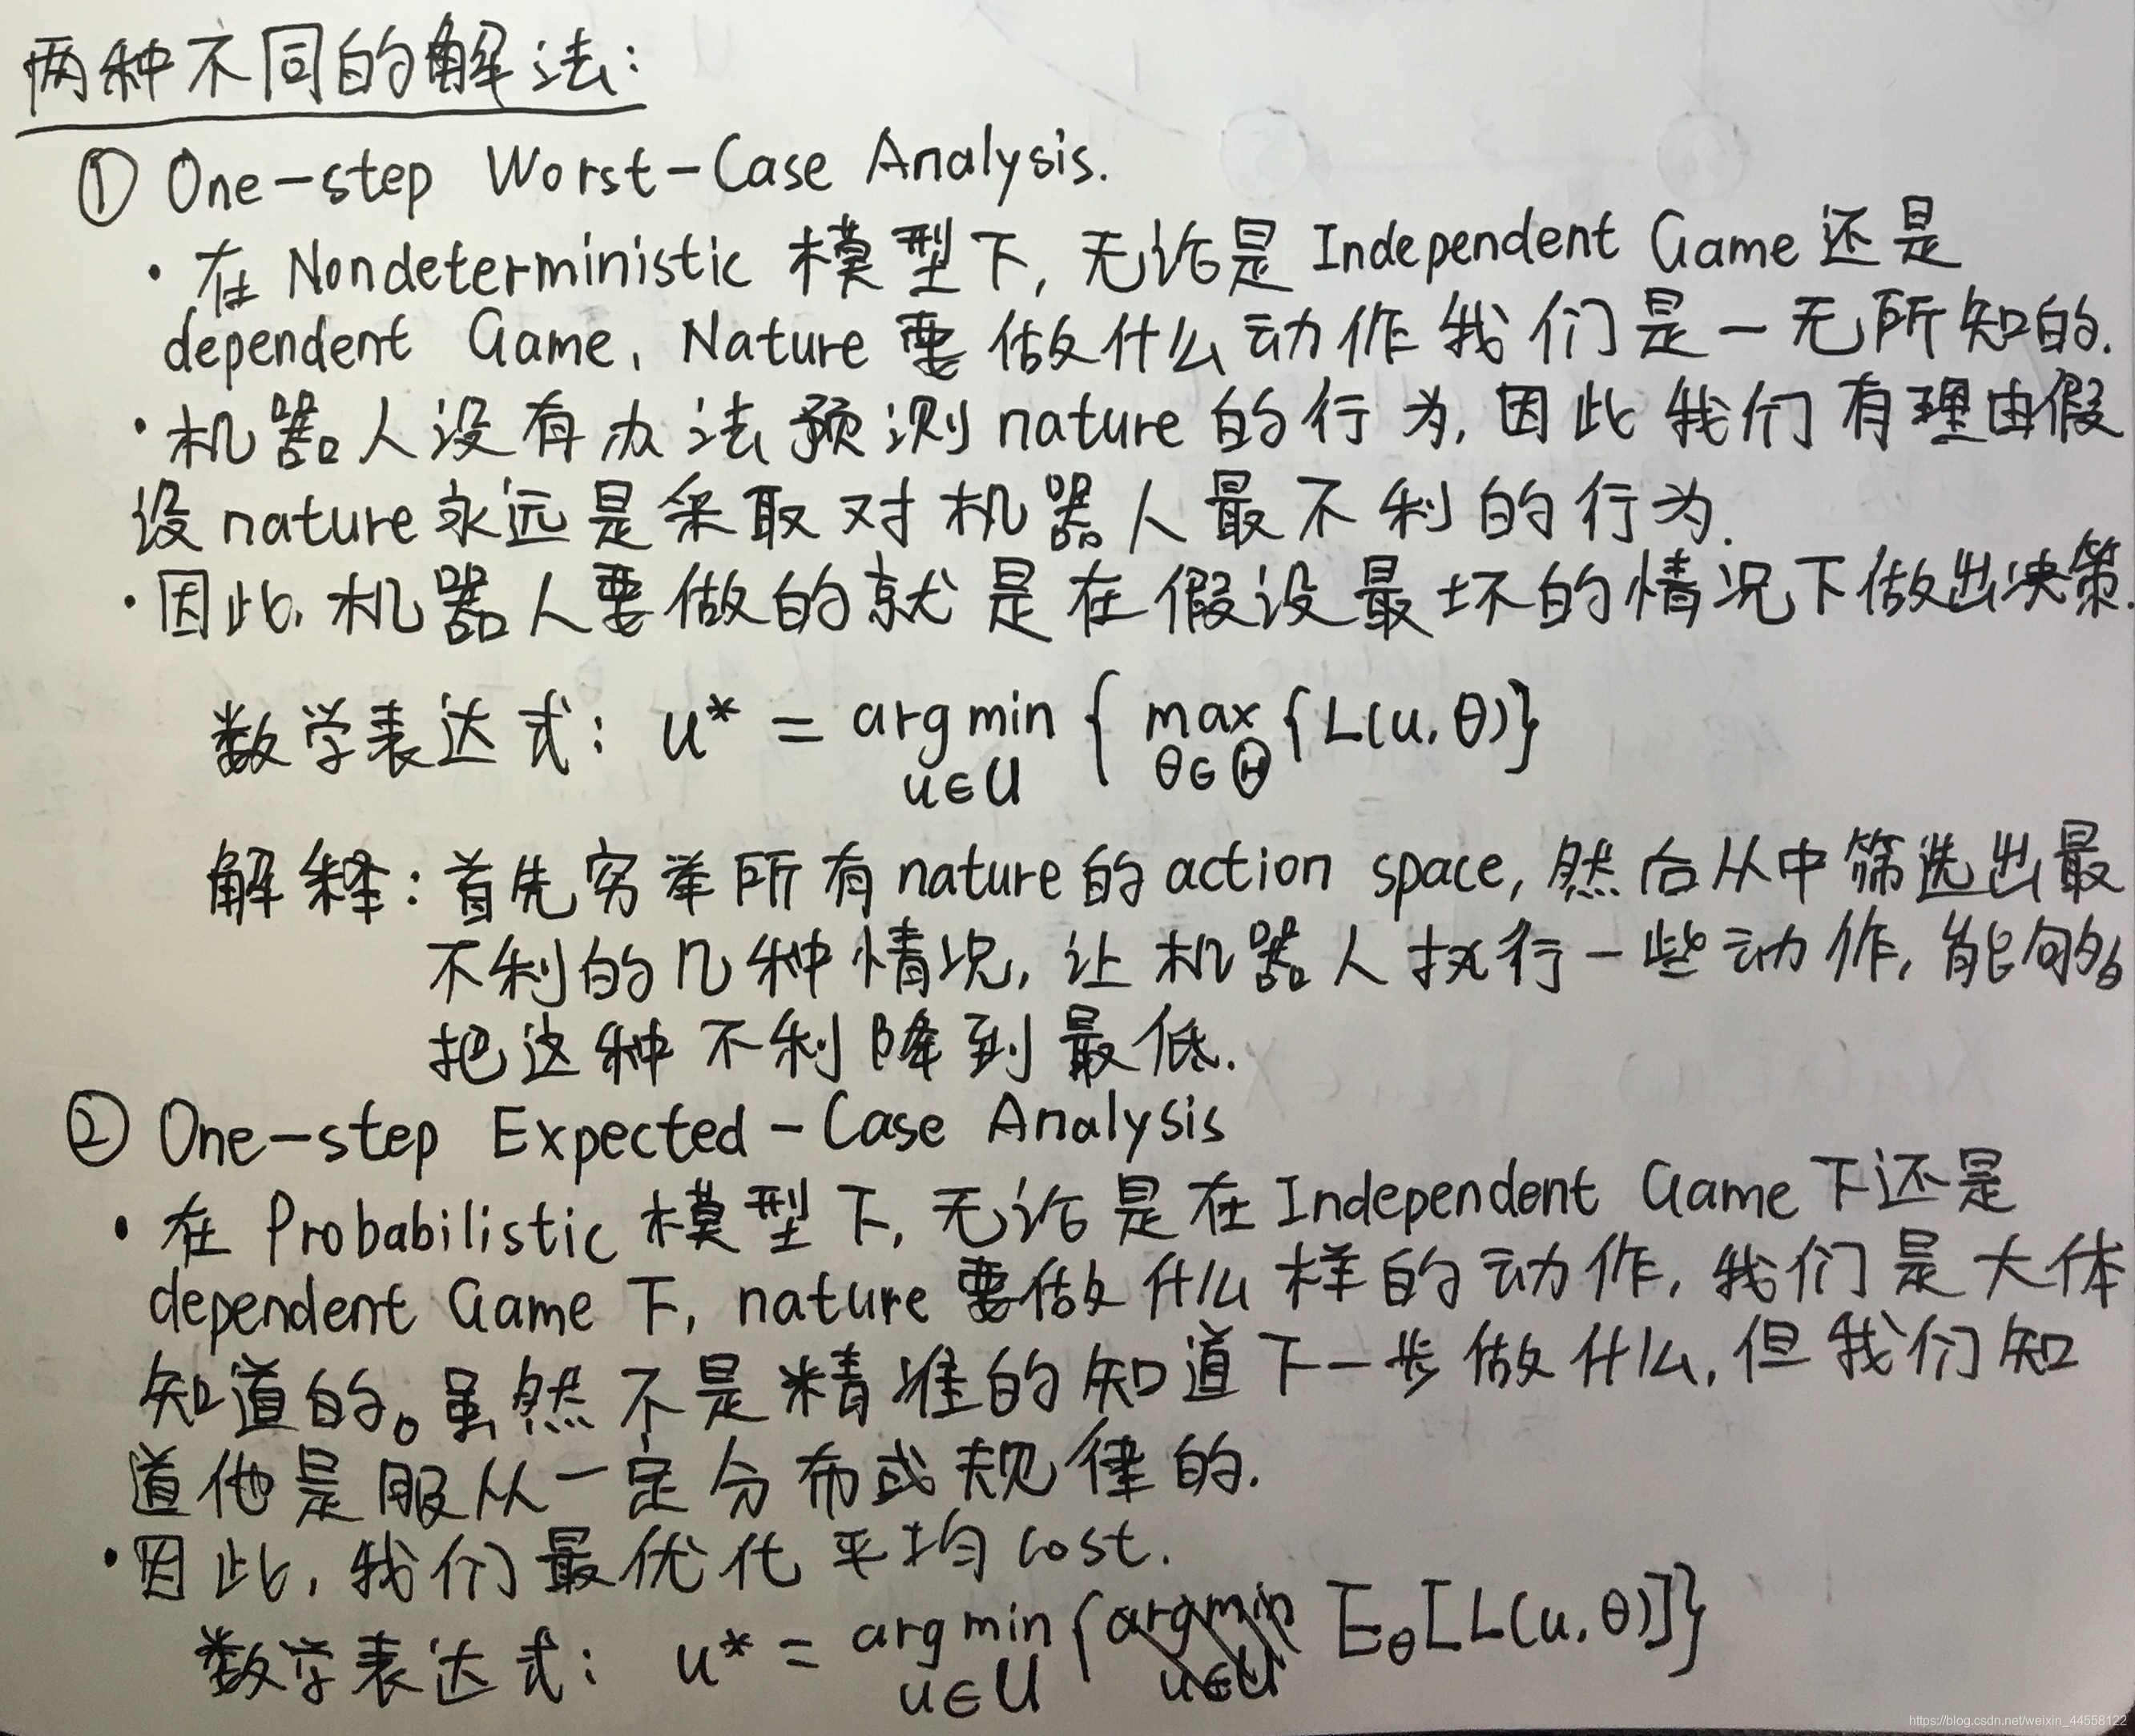 两种不同的解法:
① One-step Worst-Case Analysis.
· 在 Nondeterministic 模型下, 无论是 Independent Game 还是
dependent Game, Nature 要做什么动作我们是一无所知的.
· 机器人没有办法预测 nature 的行为, 因此我们有理由假
设 nature 永远是采取对机器人最不利的行为.
· 因此, 机器人要做的就是在假设最坏的情况下做出决策.
数学表达式: u* = arg min { max {L(u, θ)}
u∈U θ∈Θ
解释: 首先穷举所有 nature 的 action space, 然后从中筛选出最
不利的几种情况, 让机器人执行一些动作, 能够
把这种不利降到最低.
② One-step Expected-Case Analysis
· 在 Probabilistic 模型下, 无论是在 Independent Game 下还是
dependent Game 下, nature 要做什么样的动作, 我们是大体
知道的。虽然不是精准的知道下一步做什么, 但我们知
道他是服从一定分布或规律的.
· 因此, 我们最优化平均 cost.
数学表达式: u* = arg min { argmin E_θ[L(u, θ)]}
u∈U u∈U
https://blog.csdn.net/weixin_44558122